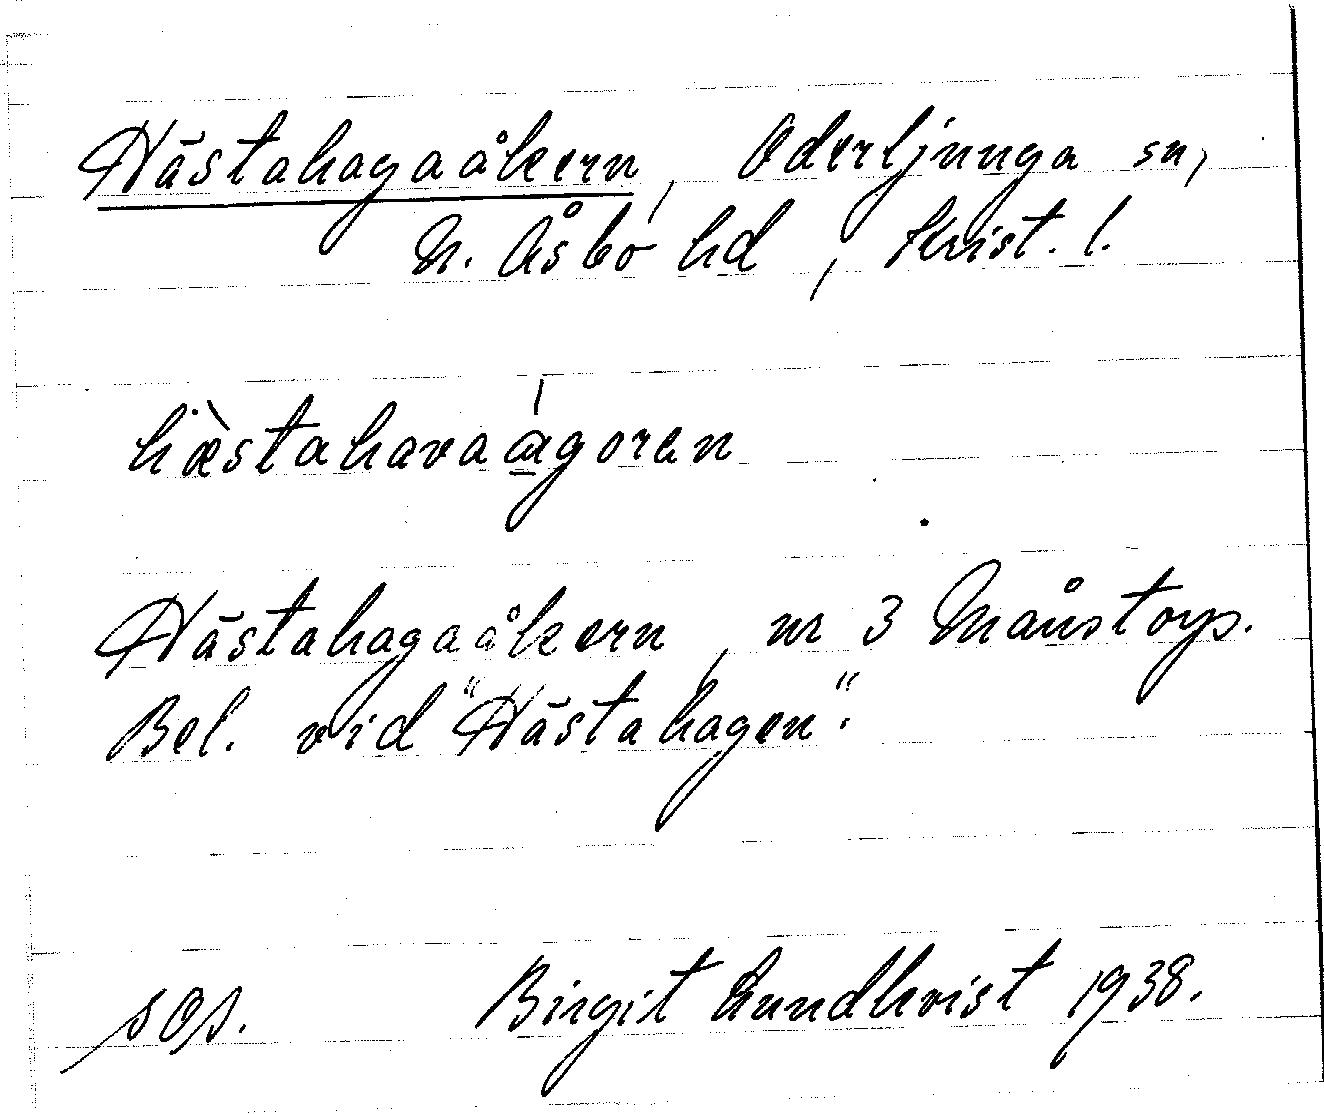 Hästahagaåkern, Oderljunga sn,
N. Åsbo hd, Krist. l.
hæ̀stahavaágoren
Hästahagaåkern, nr 3 Månstorp.
Bel. vid "Hästahagen".
sOs. Birgit Lundkvist 1938.